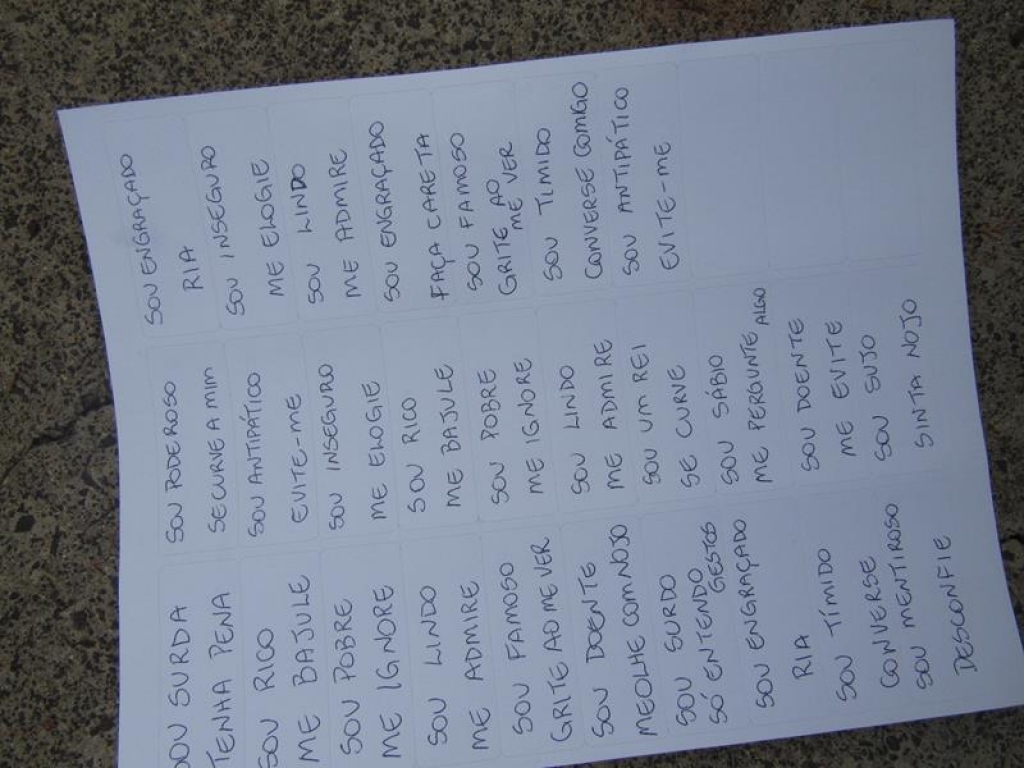 SOU SURDA
TENHA PENA
SOU RICO
ME BAJULE
SOU POBRE
ME IGNORE
SOU LINDO
ME ADMIRE
SOU FAMOSO
GRITE AO ME VER
SOU DOENTE
ME OLHE COM NOJO
SOU SURDO
SÓ ENTENDO
GESTOS
SOU ENGRAÇADO
RIA
SOU TÍMIDO
CONVERSE
SOU MENTIROSO
DESCONFIE
SOU PODEROSO
SE CURVE A MIM
SOU ANTIPÁTICO
EVITE-ME
SOU INSEGURO
ME ELOGIE
SOU RICO
ME BAJULE
SOU POBRE
ME IGNORE
SOU LINDO
ME ADMIRE
SOU UM REI
SE CURVE
SOU SÁBIO
ME PERGUNTE
ALGO
SOU DOENTE
ME EVITE
SOU SUJO
SINTA NOJO
SOU ENGRAÇADO
RIA
SOU INSEGURO
ME ELOGIE
SOU LINDO
ME ADMIRE
SOU ENGRAÇADO
FAÇA CARETA
SOU FAMOSO
GRITE AO
ME VER
SOU TIMIDO
CONVERSE COMIGO
SOU ANTIPÁTICO
EVITE-ME